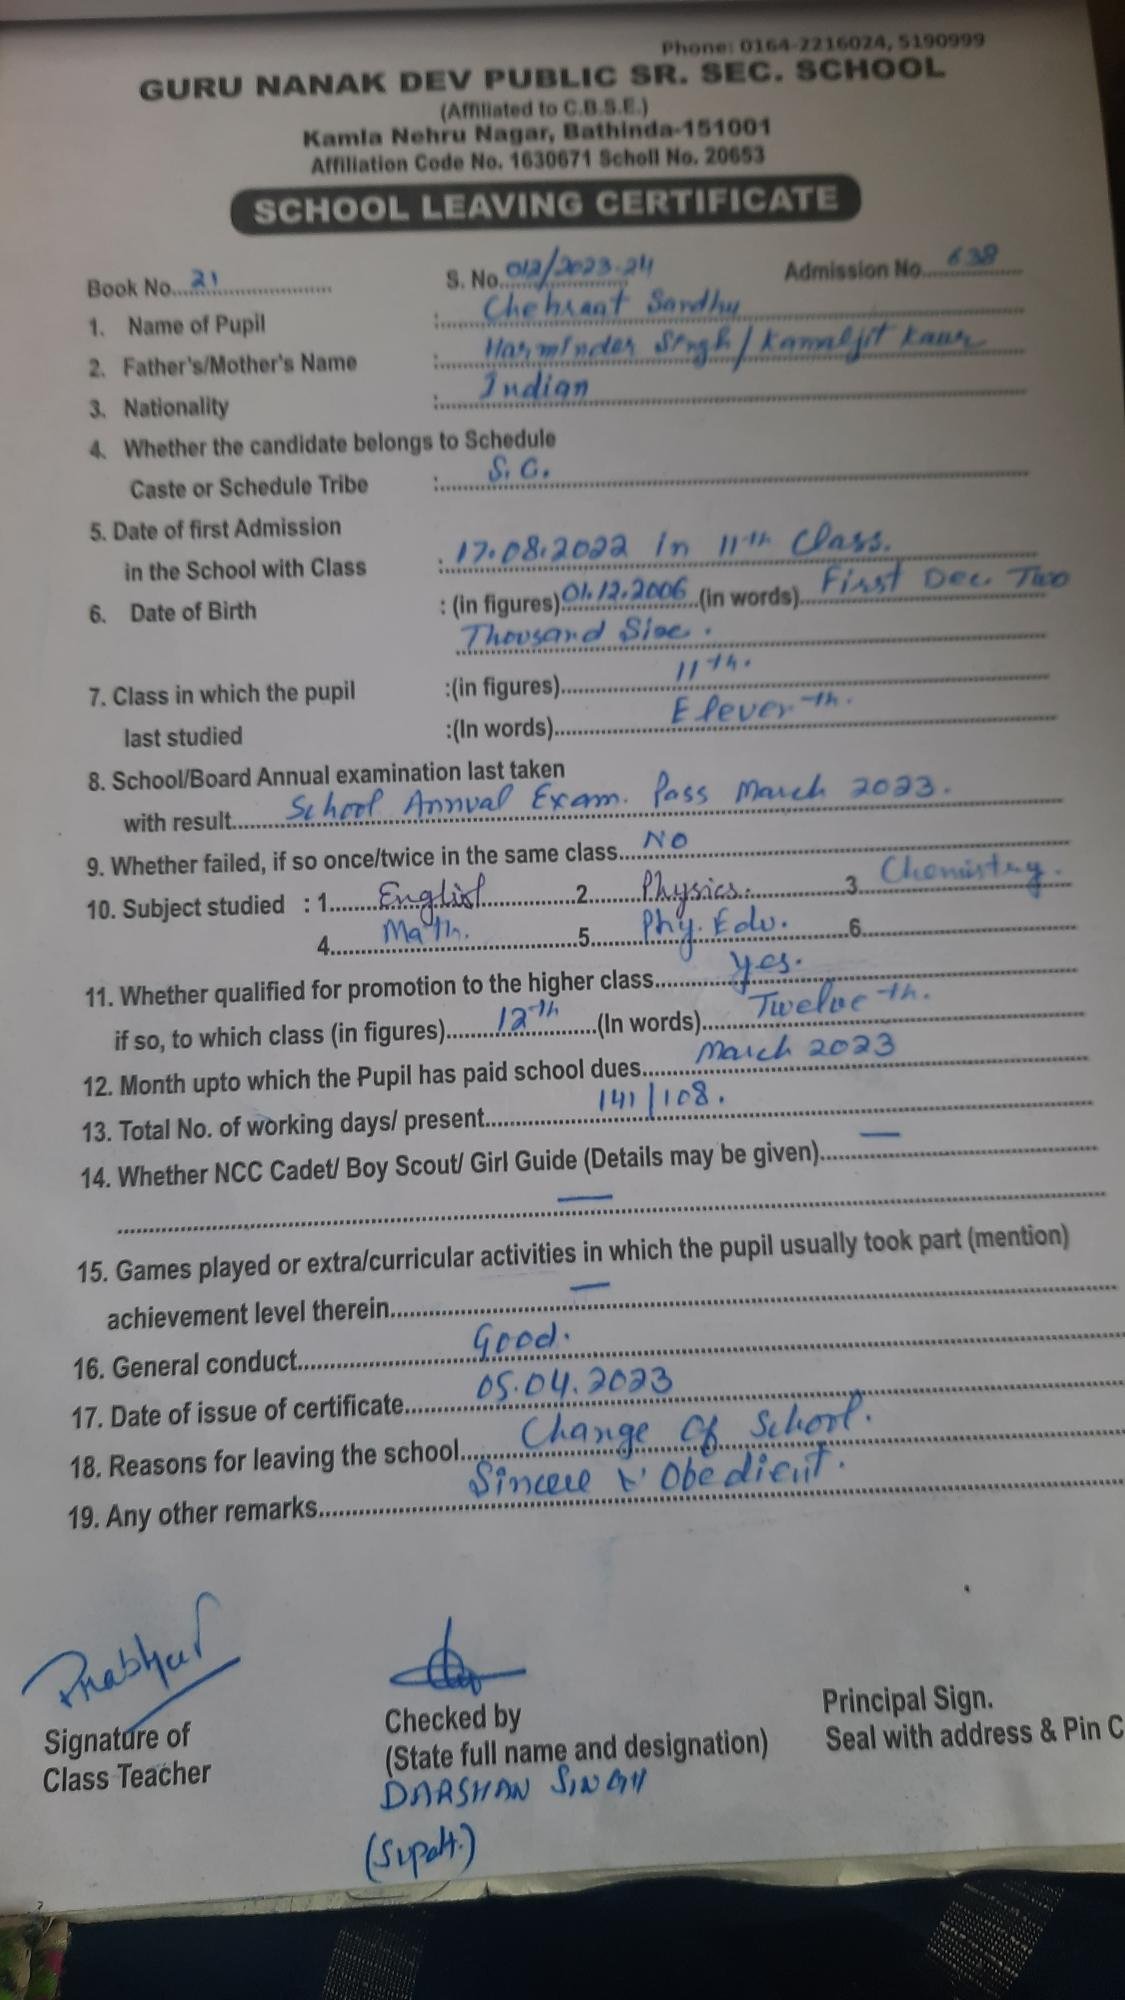 Phone: 0164-2216024, 5190999
GURU NANAK DEV PUBLIC SR. SEC. SCHOOL
(Affiliated to C.B.S.E.)
Kamla Nehru Nagar, Bathinda-151001
Affiliation Code No. 1630671 Scholl No. 20653
SCHOOL LEAVING CERTIFICATE
Book No. 21 S. No. 012/2023-24 Admission No. 638
1. Name of Pupil : Chehraat Sandhu
2. Father's/Mother's Name : Harminder Singh/Kamaljit Kaur
3. Nationality : Indian
4. Whether the candidate belongs to Schedule
Caste or Schedule Tribe : S.C.
5. Date of first Admission
in the School with Class : 17.08.2022 in 11th Class.
6. Date of Birth : (in figures) 01.12.2006 (in words) First Dec. Two
Thousand Six.
7. Class in which the pupil :(in figures) 11th.
last studied :(In words) Eleventh.
8. School/Board Annual examination last taken
with result School Annual Exam. Pass March 2023.
9. Whether failed, if so once/twice in the same class No
10. Subject studied : 1. English 2. Physics. 3. Chemistry.
4. Math. 5. Phy. Edu. 6.
11. Whether qualified for promotion to the higher class yes.
if so, to which class (in figures) 12th (In words) Twelveth.
12. Month upto which the Pupil has paid school dues March 2023
13. Total No. of working days/ present 141/108.
14. Whether NCC Cadet/ Boy Scout/ Girl Guide (Details may be given) —
—
15. Games played or extra/curricular activities in which the pupil usually took part (mention)
achievement level therein —
16. General conduct Good.
17. Date of issue of certificate 05.04.2023
18. Reasons for leaving the school Change of School.
19. Any other remarks Sincere & Obedient.
Signature of Class Teacher
Checked by
(State full name and designation)
DARSHAN SINGH
(Supdt.)
Principal Sign.
Seal with address & Pin C